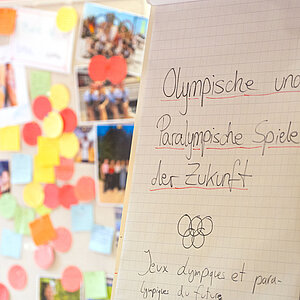 Olympische und
Paralympische Spiele
der Zukunft
Jeux olympiques et para-
lympiques du future